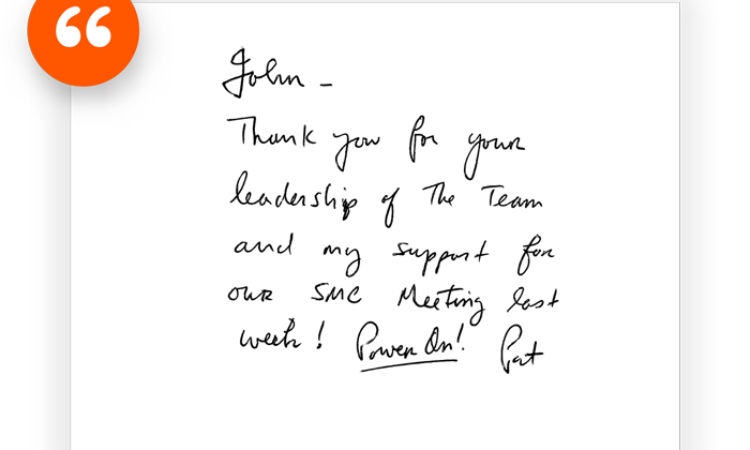 “
John -
Thank you for your
leadership of The Team
and my support for
our SMC Meeting last
week! Power On! Pat